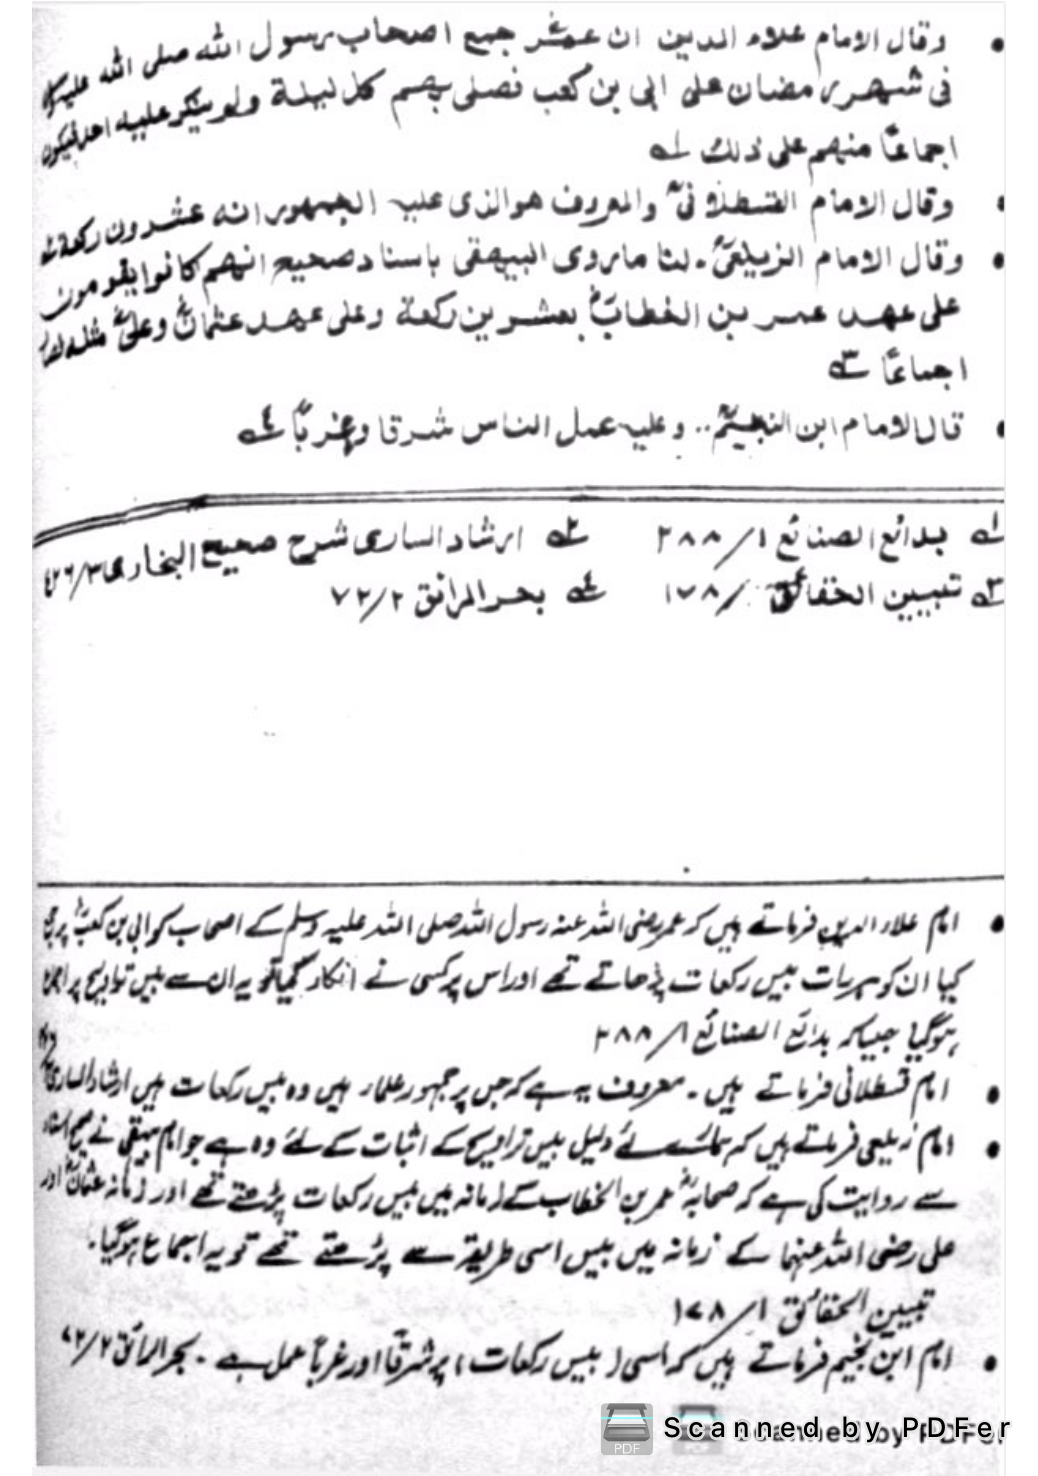 • وقال الامام علاء الدين ان عمرؓ جمع اصحاب رسول الله صلى الله عليه
فى شهر رمضان على ابى بن كعب فصلى بهم كل ليلة ولم ينكر عليه احد فيكون
اجماعًا منهم على ذلك ١ـه
• وقال الامام القسطلانىؒ والمعروف هو الذى عليه الجمهور انه عشرون ركعة
• وقال الامام الزيلعىؒ۔ لنا ماروى البيهقى باسناد صحيح انهم كانوا يقومون
على عهد عمر بن الخطابؓ بعشرين ركعة وعلى عهد عثمانؓ وعلىؓ مثله
اجماعًا ٣ـه
• قال الامام ابن النجيمؒ.. وعليه عمل الناس شرقا وغربًا ٤ـه
١ـه بدائع الصنائع ١/٢٨٨ ٢ـه ارشاد السارى شرح صحيح البخارى ٣/٤٢٦
٣ـه تبيين الحقائق /١٧٨ ٤ـه بحر الرائق ٢/٧٢
• امام علاء الدین فرماتے ہیں کہ عمر رضی اللہ عنہ رسول اللہ صلی اللہ علیہ وسلم کے اصحاب کو ابی بن کعبؓ پر
کیا ان کو ہر رات بیس رکعات پڑھاتے تھے اور اس پر کسی نے انکار نہ کیا تو یہ ان سے بیس تراویح پر
ہوگیا جیسا کہ بدائع الصنائع ١/٢٨٨
• امام قسطلانی فرماتے ہیں ۔ معروف یہ ہے کہ جس پر جمہور علماء ہیں وہ بیس رکعات ہیں ارشاد الساری
• امام زیلعی فرماتے ہیں کہ ہمارے لئے دلیل بیس تراویح کے اثبات کے لئے وہ ہے جو امام بیہقی نے صحیح اسناد
سے روایت کی ہے کہ صحابہؓ عمر بن الخطاب کے زمانہ میں بیس رکعات پڑھتے تھے اور زمانہ عثمانؓ اور
علی رضی اللہ عنہما کے زمانہ میں بیس اسی طریقہ سے پڑھتے تھے تو یہ اجماع ہوگیا۔
تبیین الحقائق ١/١٧٨
• امام ابن نجیم فرماتے ہیں کہ اسی (بیس رکعات) پر شرقاً اور غرباً عمل ہے ۔ بحر الرائق ٢/٧٢
Scanned by PDFer